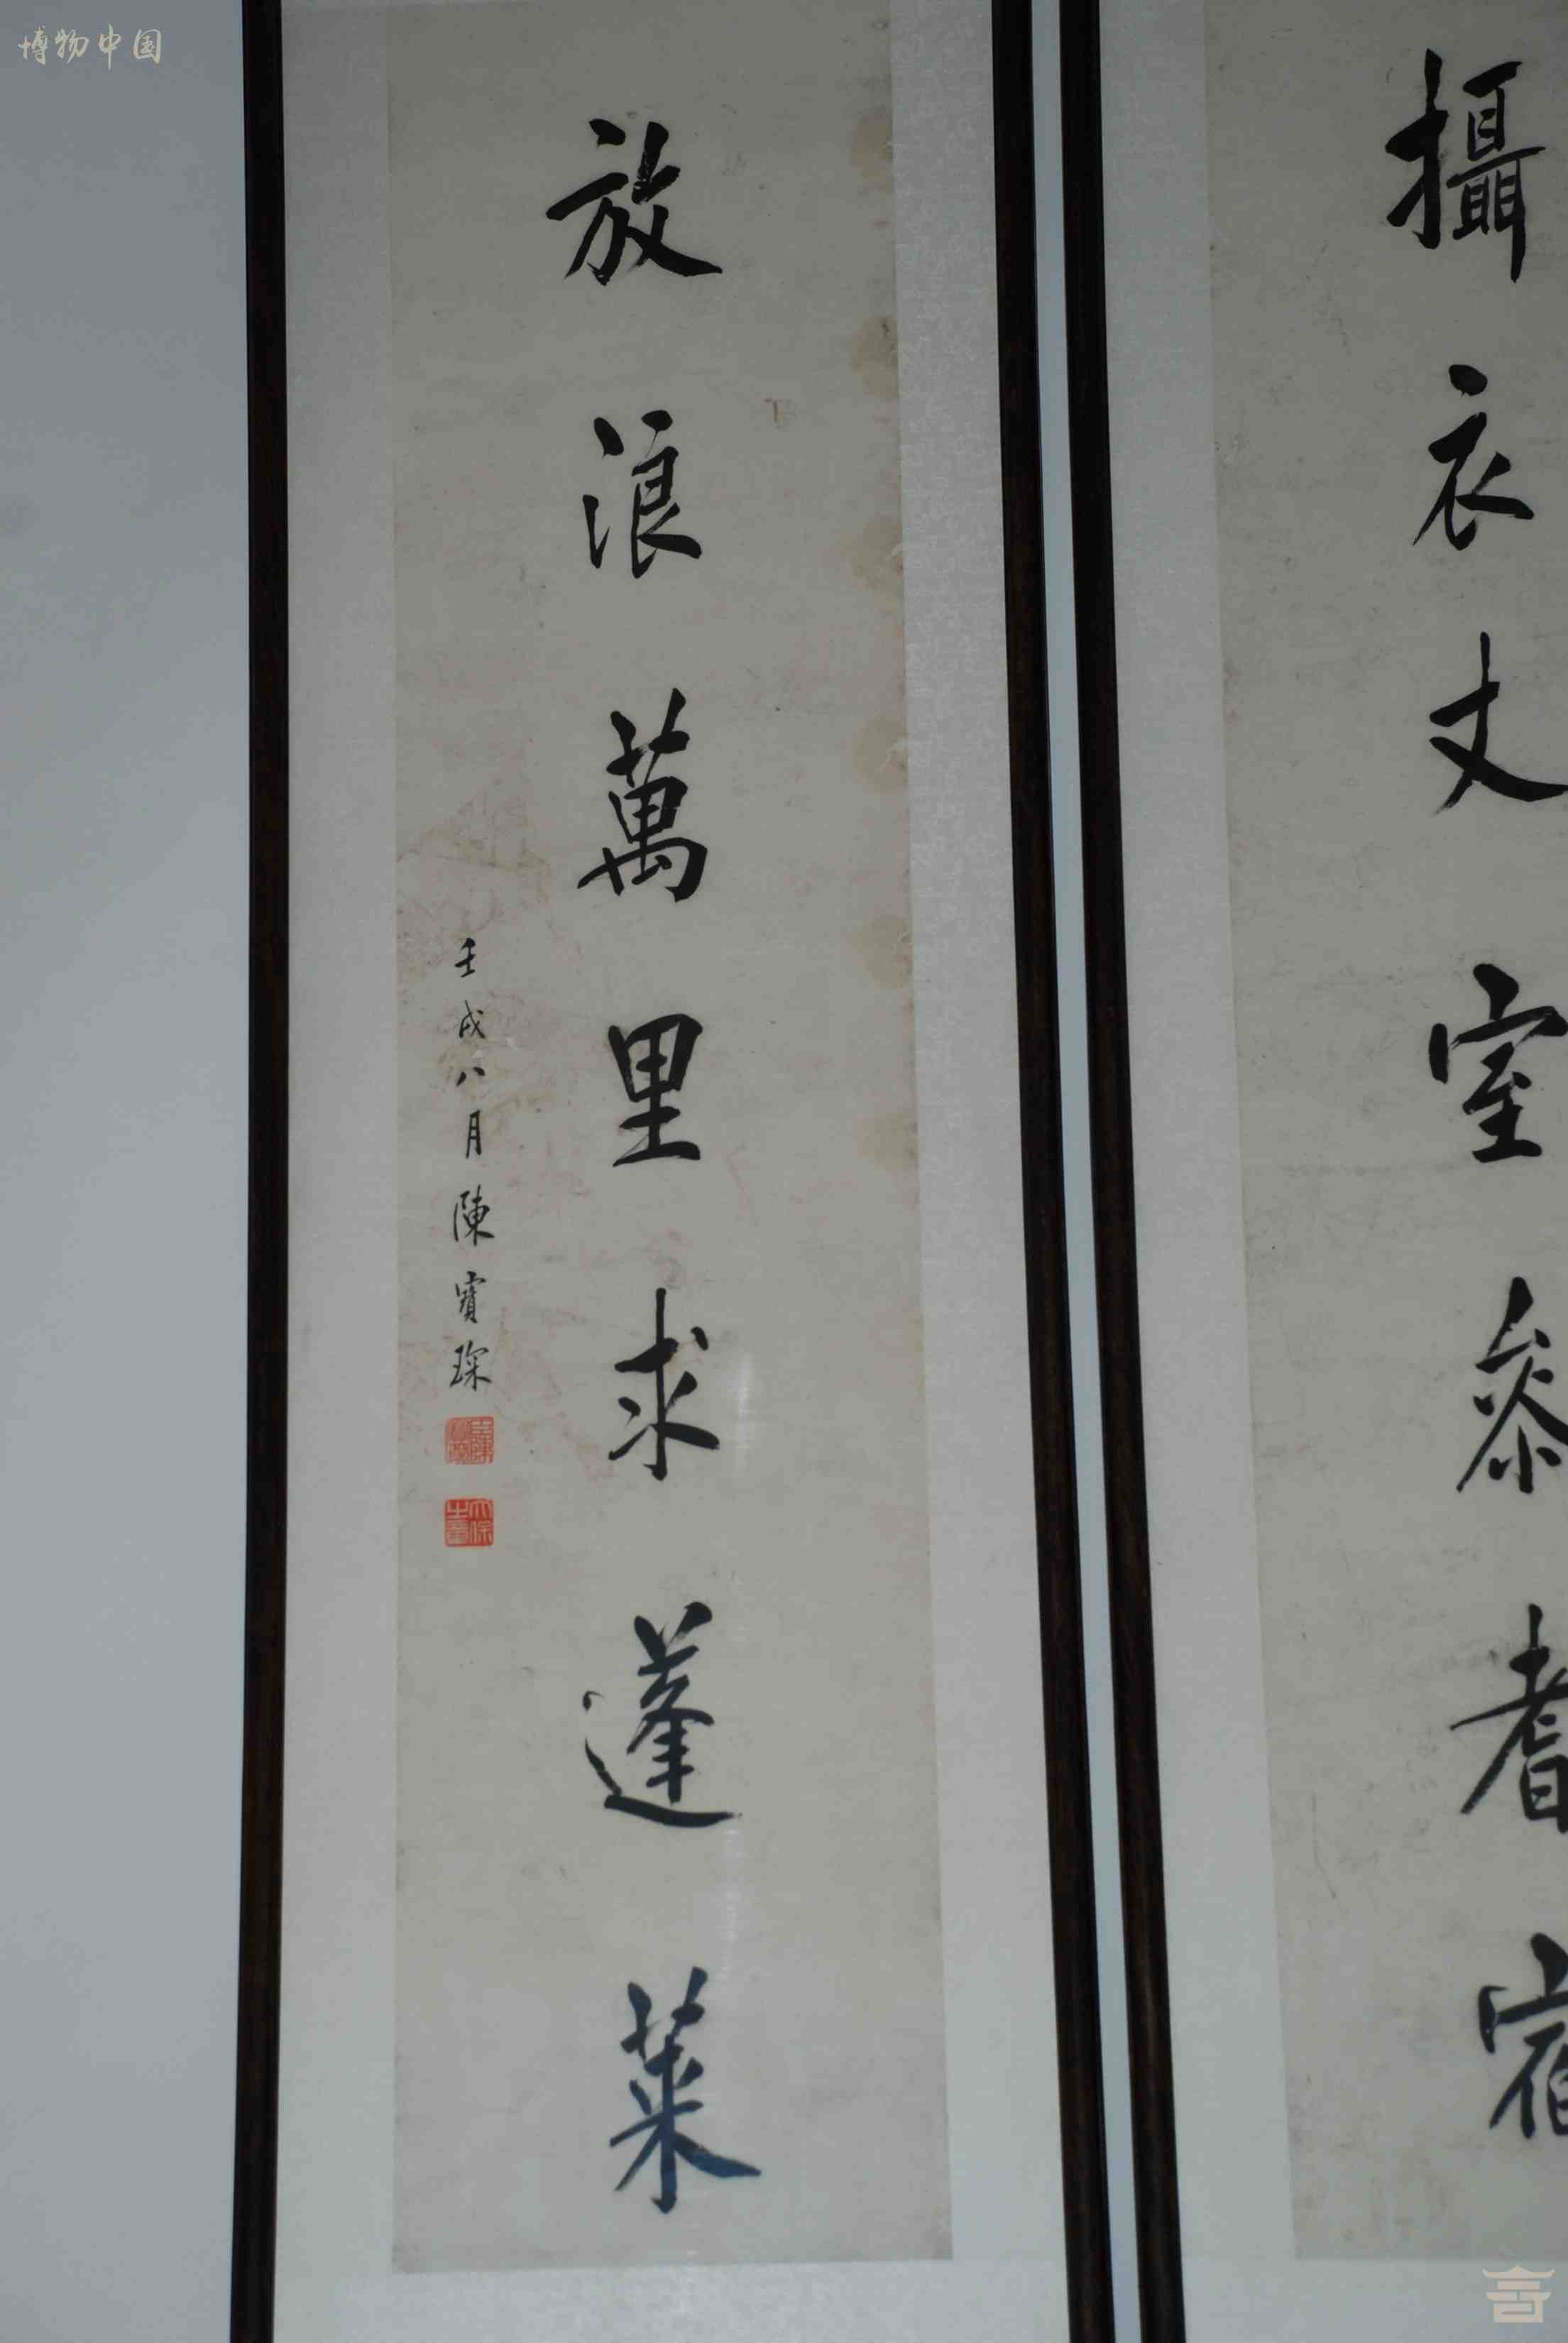 博物中国
攝衣丈室參耆宿
放浪萬里求蓬萊
壬戌八月陳寶琛